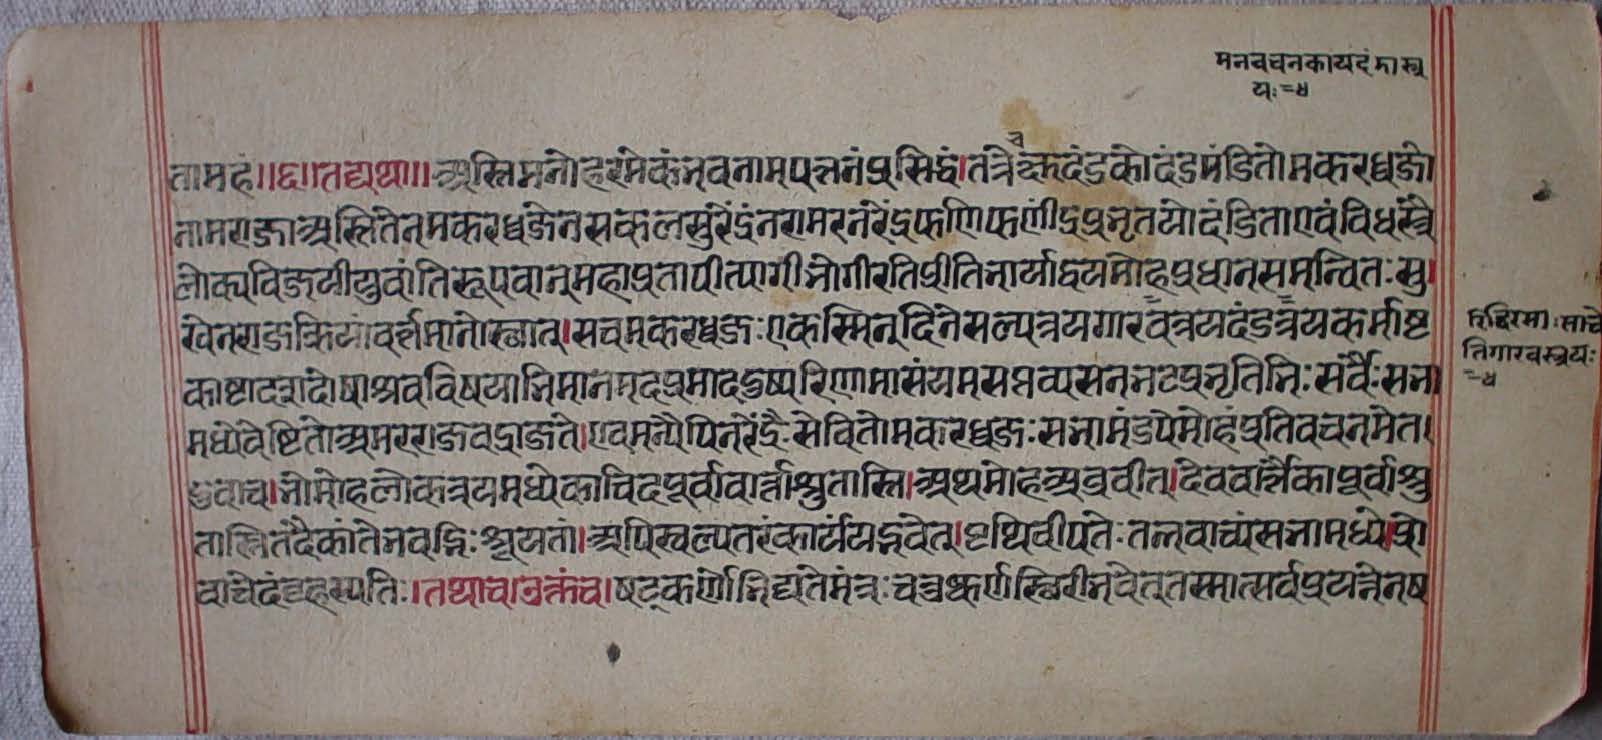 मनवचनकायदंडास्त्र
यः=४
तामहं॥छ॥तद्यथा॥अस्तिमनोहरमेकंभवनामपत्तनंप्रसिद्धं।तत्रेच्क्षुदंडकोदंडमंडितोमकरध्वजो
नामराजाअस्तितेनमकरध्वजेनसकलसुरेंद्रनरामरनरेंद्रफणिफणींद्रप्रभृतयोदंडिताएवंविधस्त्रै
लोक्यविजयीयुवातिरूपवान्महाप्रतापीत्यागीभोगीरतिप्रीतिभार्याद्वयमोहप्रधानसमन्वितःसु।
खेनराजक्रियांवर्त्तमानोस्थात्।सचमकरध्वजःएकस्मिन्दिनेसल्यत्रयगारवत्रयदंडत्रयकर्माष्ट
काष्टादशदोषाश्रवविषयाभिमानमदप्रमाददुष्परिणामासंयमसप्तव्यसनभटप्रभृतिभिःसर्वैःसभा
मध्येवेष्टितोअमरराजवद्राजते।एवमन्यैपिनरेंद्रैःसेवितोमकरध्वजःसभामंडपेमोहंप्रतिवचनमेत।
दुवाच।भोमोहलोकत्रयमध्येकाचिदपूर्वावार्त्ताश्रुतास्ति।अथमोहअब्रवीत्।देववार्त्तैकापूर्वाश्रु
तास्तितदैकांतेभवद्भिःश्रूयतां।अपिस्वल्पतरंकार्यंयद्भवेत्।पृथिवीपतेःतन्नवाच्यंसभामध्ये।प्रो
वाचेदंबृहस्पतिः।तथाच।उक्तंच।षट्कर्णोभिद्यतेमंत्रःचतुष्कर्णस्थिरीभवेत्तस्मात्सर्वप्रयत्नेनष
तिगारवस्त्रयः
=४